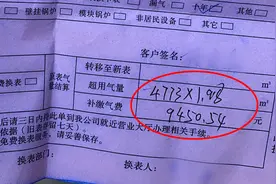 壁挂锅炉 燃气灶 七年
模块锅炉 非居民设备
客户签名:
原表气量结算
转移至新表 m³
超用气量 4773×1.98
补缴气费 9450.54
后请三日内持此单到我公司就近营业大厅办理相关手续。
依据(旧表保留七天)。
存,请妥善保存。
换表部门: 换表人: